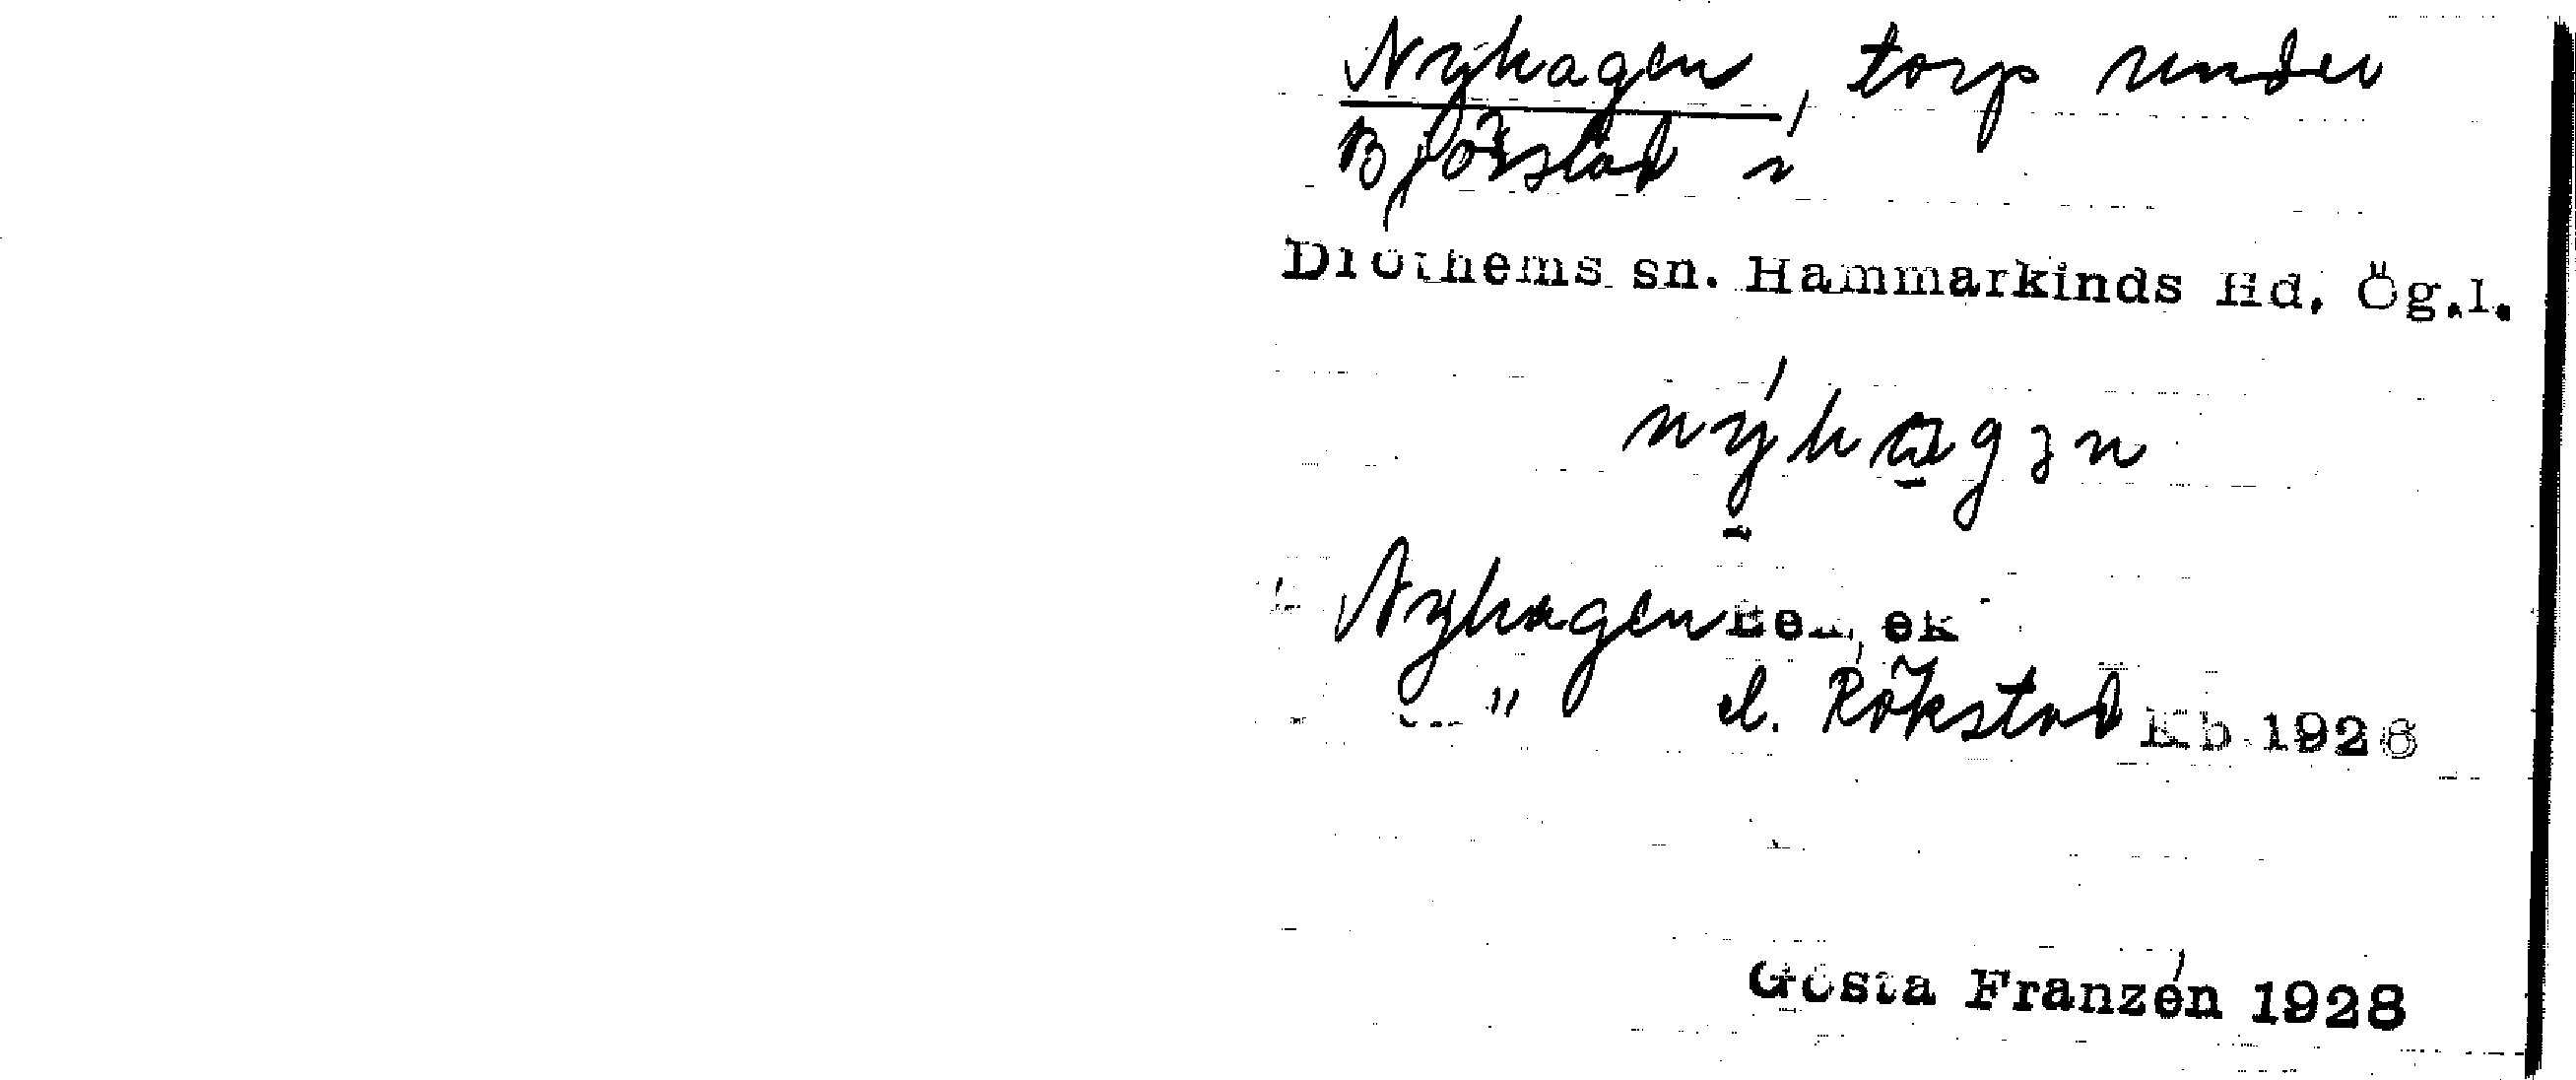 Nyhagen, torp under
Björstad i
Drothems sn. Hammarkinds Hd, Ög.l.
nýhagən
Nyhagen ek
" el. Rökstad Kb 1926
Gösta Franzén 1928